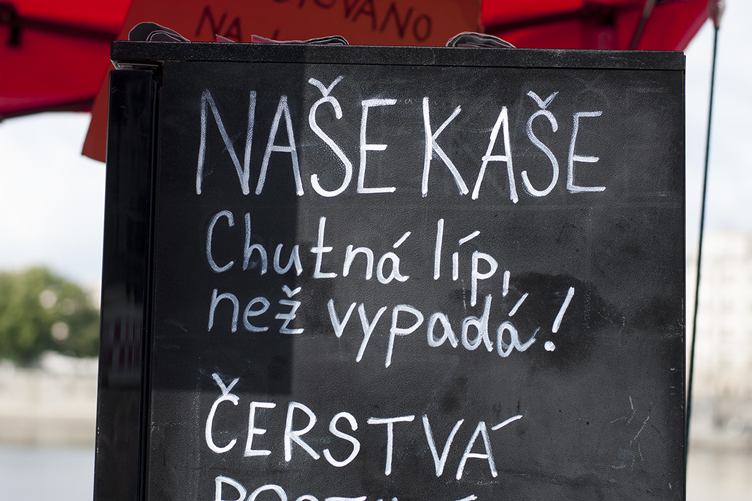 NA
NAŠE KAŠE
Chutná líp,
než vypadá!
ČERSTVÁ